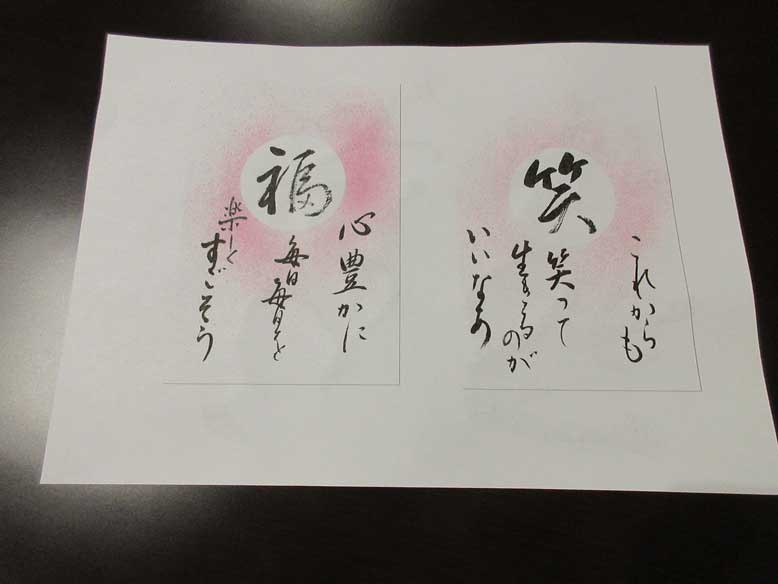 笑
これからも
笑って
生きるのが
いいなあ
福
心豊かに
毎日毎日を
楽しく
すごそう